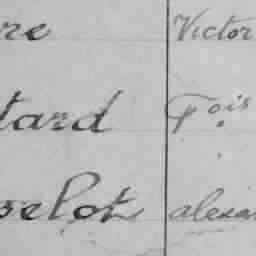 re Victor
tard Fois
selot alexa